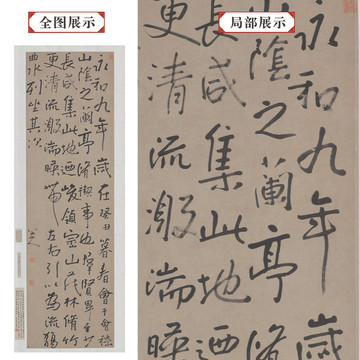 全图展示
永和九年歲在癸丑暮春會于會稽
山陰之蘭亭脩禊事也羣賢畢至少
長咸集此地迺峻領崇山茂林脩竹
更清流激湍暎帶左右引以為流觴
曲水列坐其次
局部展示
永和九年歲
山陰之蘭亭脩
長咸集此地迺
更清流激湍暎